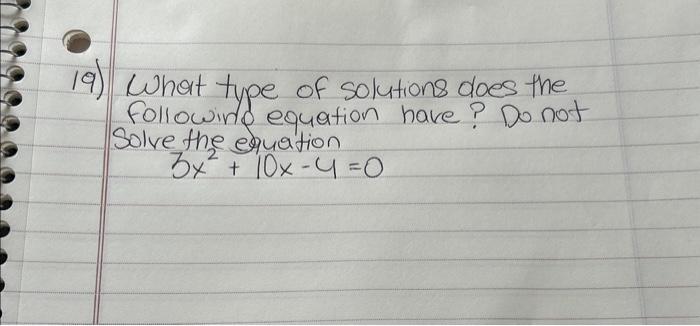 19) What type of solutions does the
following equation have? Do not
Solve the equation
3x² + 10x - 4 = 0